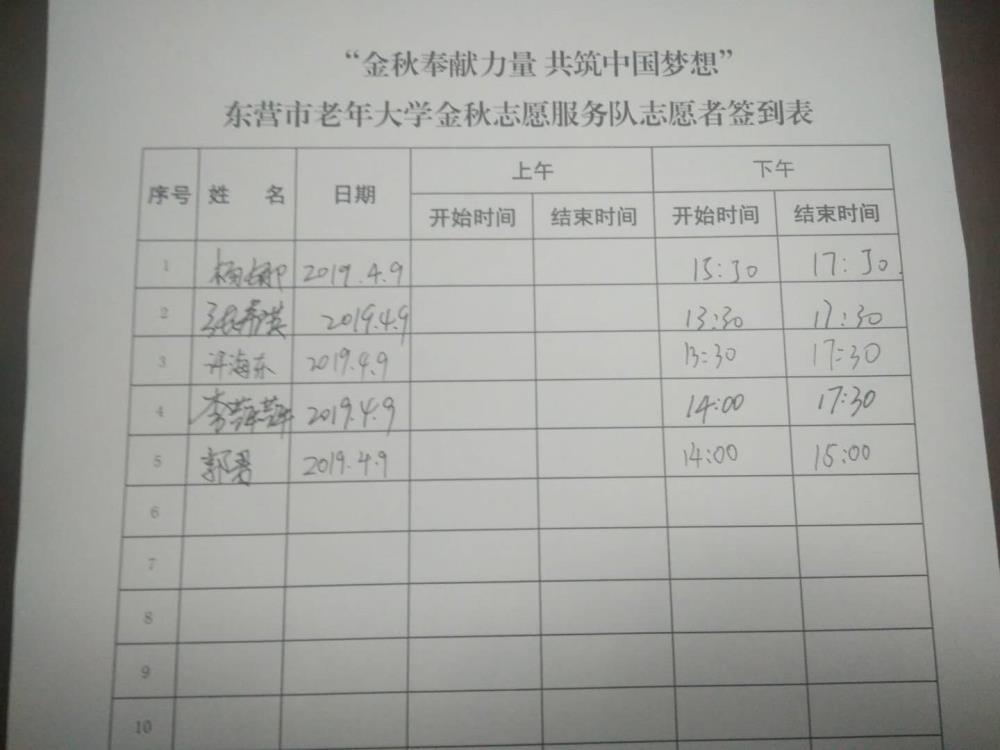 “金秋奉献力量 共筑中国梦想”
东营市老年大学金秋志愿服务队志愿者签到表
序号 姓 名 日期 上午 下午
开始时间 结束时间 开始时间 结束时间
1 杨娜 2019.4.9 13:30 17:30
2 张希淇 2019.4.9 13:30 17:30
3 许海东 2019.4.9 13:30 17:30
4 李萍萍 2019.4.9 14:00 17:30
5 郭勇 2019.4.9 14:00 15:00
6
7
8
9
10